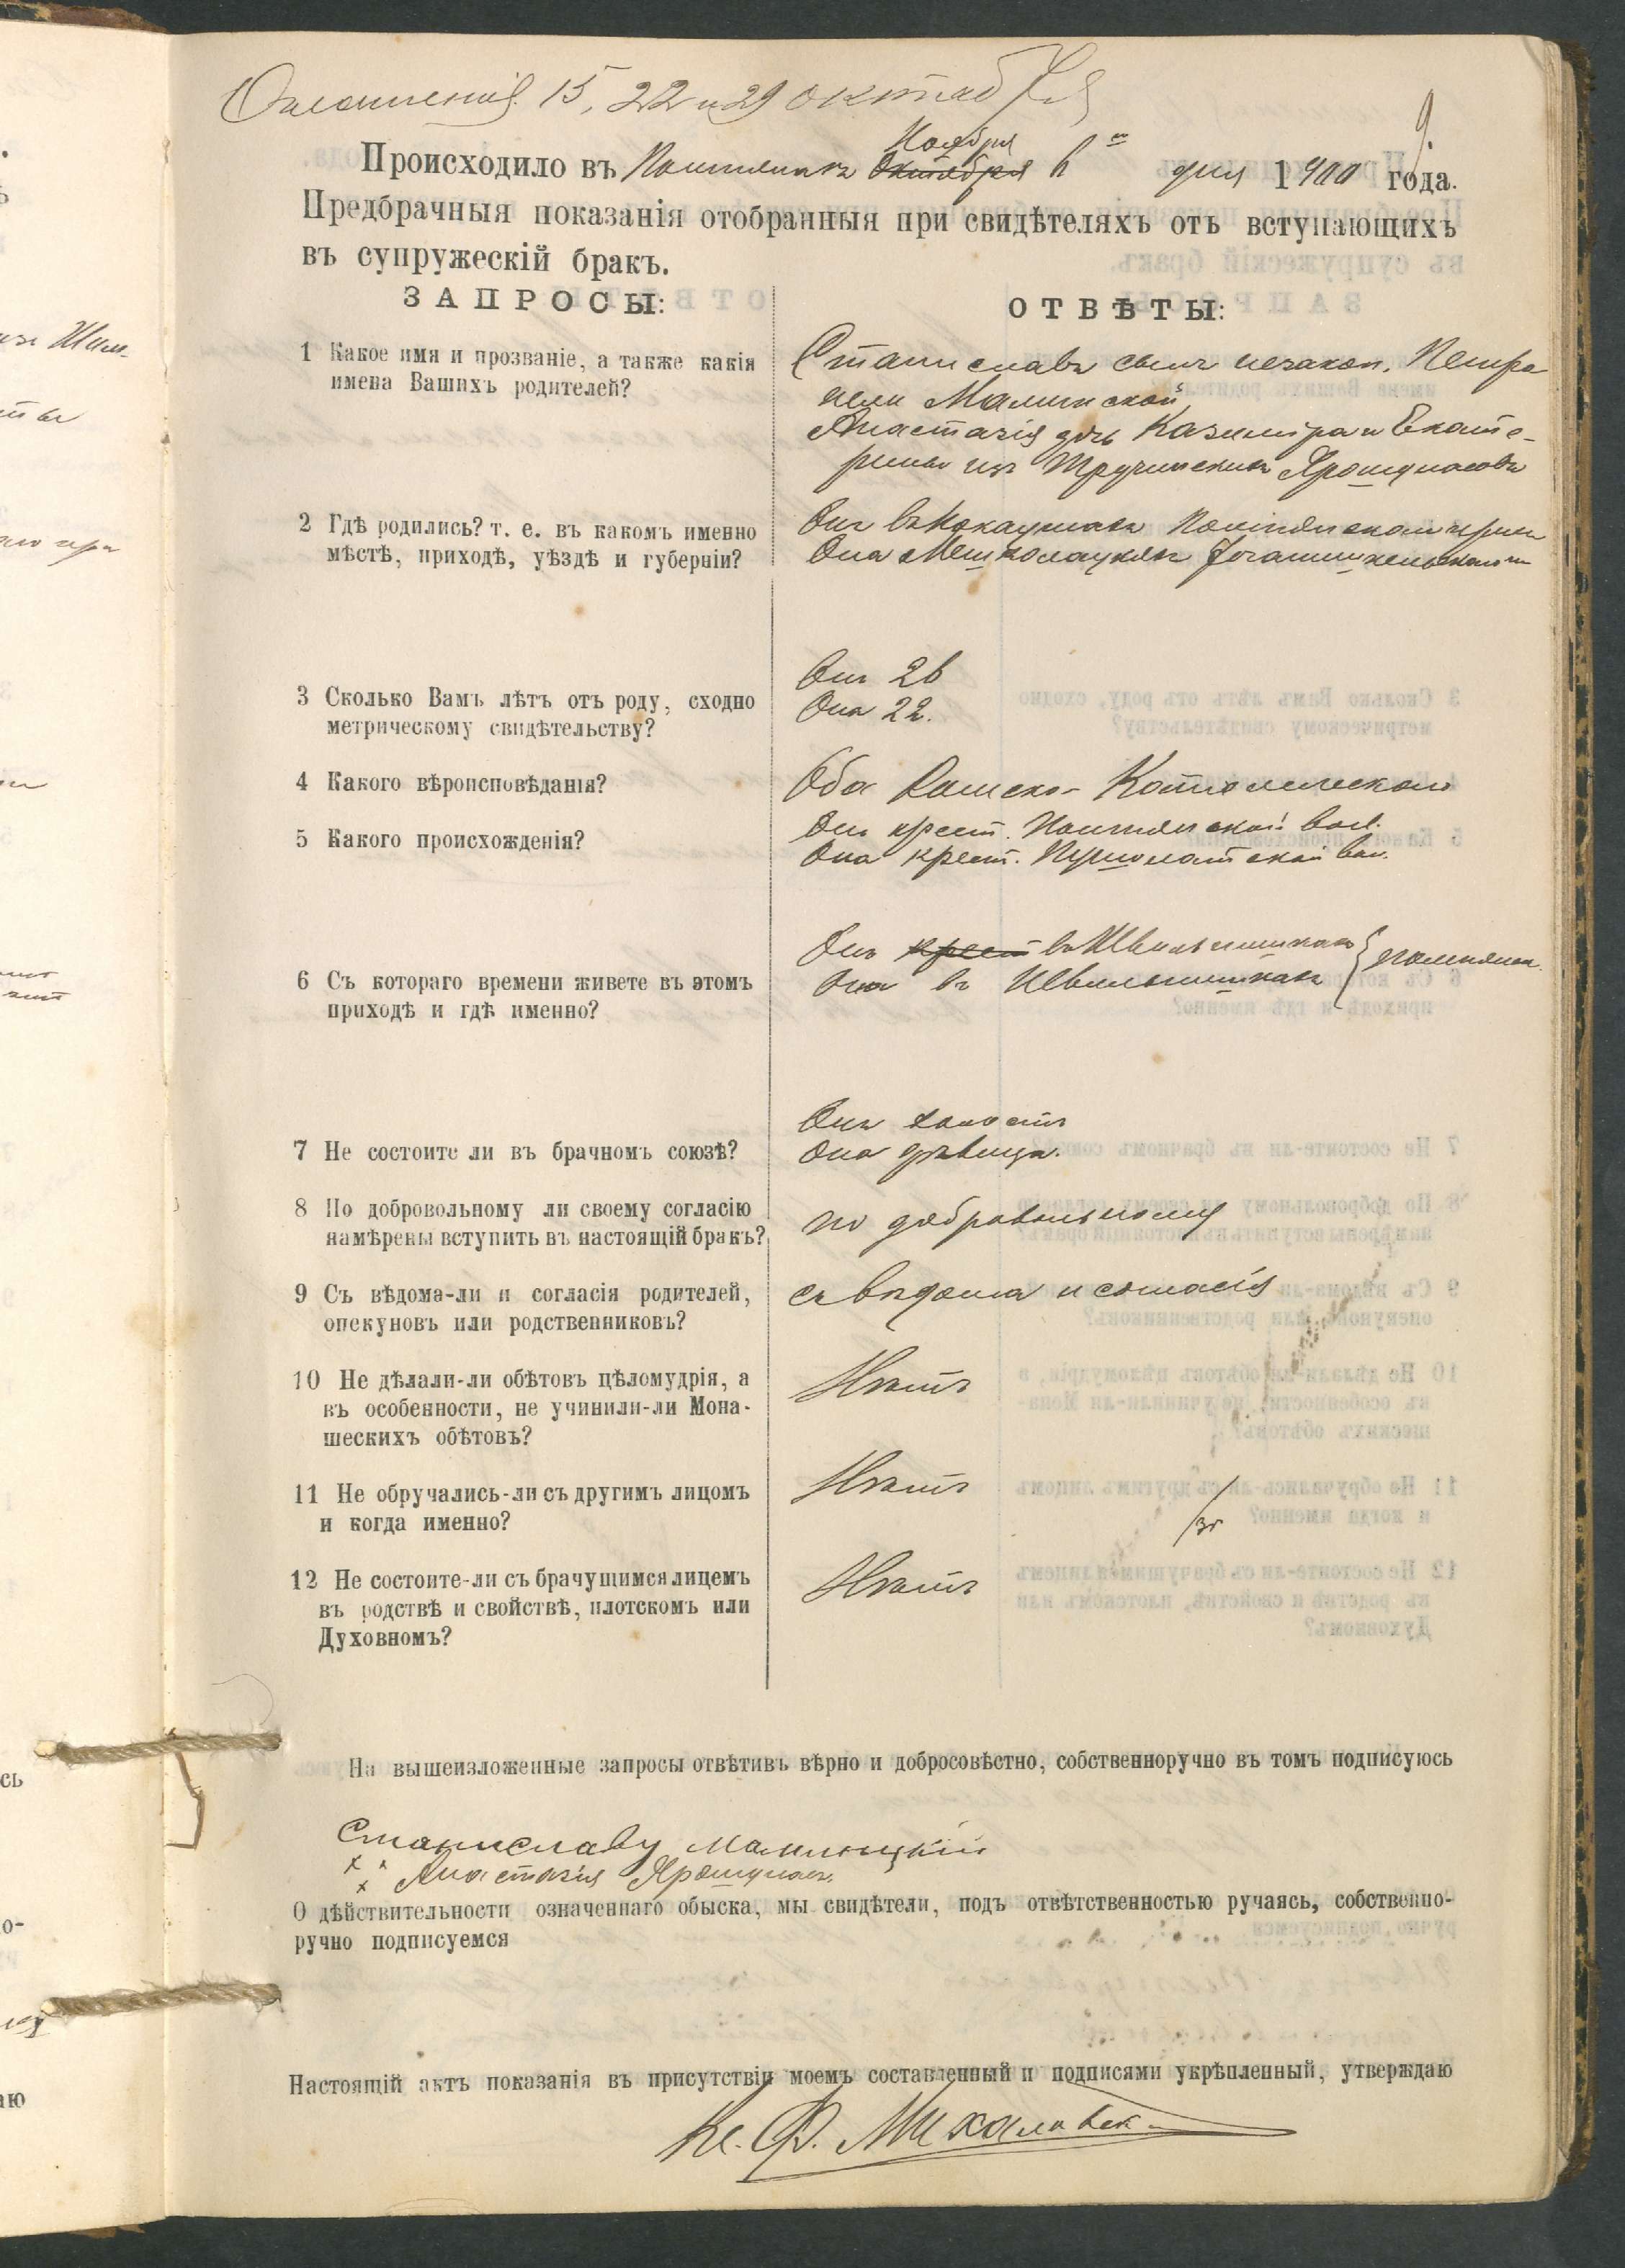 Оглашенія 15, 22 и 29 октября
9.
Ноября
Происходило въ Октября 6 дня 1900 года.
Предбрачныя показанія отобранныя при свидѣтеляхъ отъ вступающихъ
въ супружескій бракъ.
ЗАПРОСЫ:
ОТВѢТЫ:
1 Какое имя и прозваніе, а также какія
имена Вашихъ родителей?
Станиславъ сынъ незакон. Петро
нели Малинской
Анастазія дочь Казиміра и Екате-
рины изъ
2 Гдѣ родились? т. е. въ какомъ именно
мѣстѣ, приходѣ, уѣздѣ и губерніи?
Онъ въ
Она
3 Сколько Вамъ лѣтъ отъ роду, сходно
метрическому свидѣтельству?
Онъ 26
Она 22.
4 Какого вѣроисповѣданія?
Оба Римско-Католическаго
5 Какого происхожденія?
Онъ крест. вол.
Она крест. вол.
6 Съ котораго времени живете въ этомъ
приходѣ и гдѣ именно?
Онъ крест въ
Она въ
7 Не состоите ли въ брачномъ союзѣ?
Онъ холостъ
Она дѣвица.
8 По добровольному ли своему согласію
намѣрены вступить въ настоящій бракъ?
по добровольному
9 Съ вѣдома-ли и согласія родителей,
опекуновъ или родственниковъ?
съ вѣдома и согласія
10 Не дѣлали-ли обѣтовъ цѣломудрія, а
въ особенности, не учинили-ли Мона-
шескихъ обѣтовъ?
Нѣтъ
11 Не обручались-ли съ другимъ лицомъ
и когда именно?
Нѣтъ
12 Не состоите-ли съ брачущимся лицемъ
въ родствѣ и свойствѣ, плотскомъ или
Духовномъ?
Нѣтъ
На вышеизложенные запросы отвѣтивъ вѣрно и добросовѣстно, собственноручно въ томъ подписуюсь
Станиславу
Анастазія
О дѣйствительности означеннаго обыска, мы свидѣтели, подъ отвѣтственностью ручаясь, собственно-
ручно подписуемся
Настоящій актъ показанія въ присутствіи моемъ составленный и подписями укрѣпленный, утверждаю
Кс. Ф.